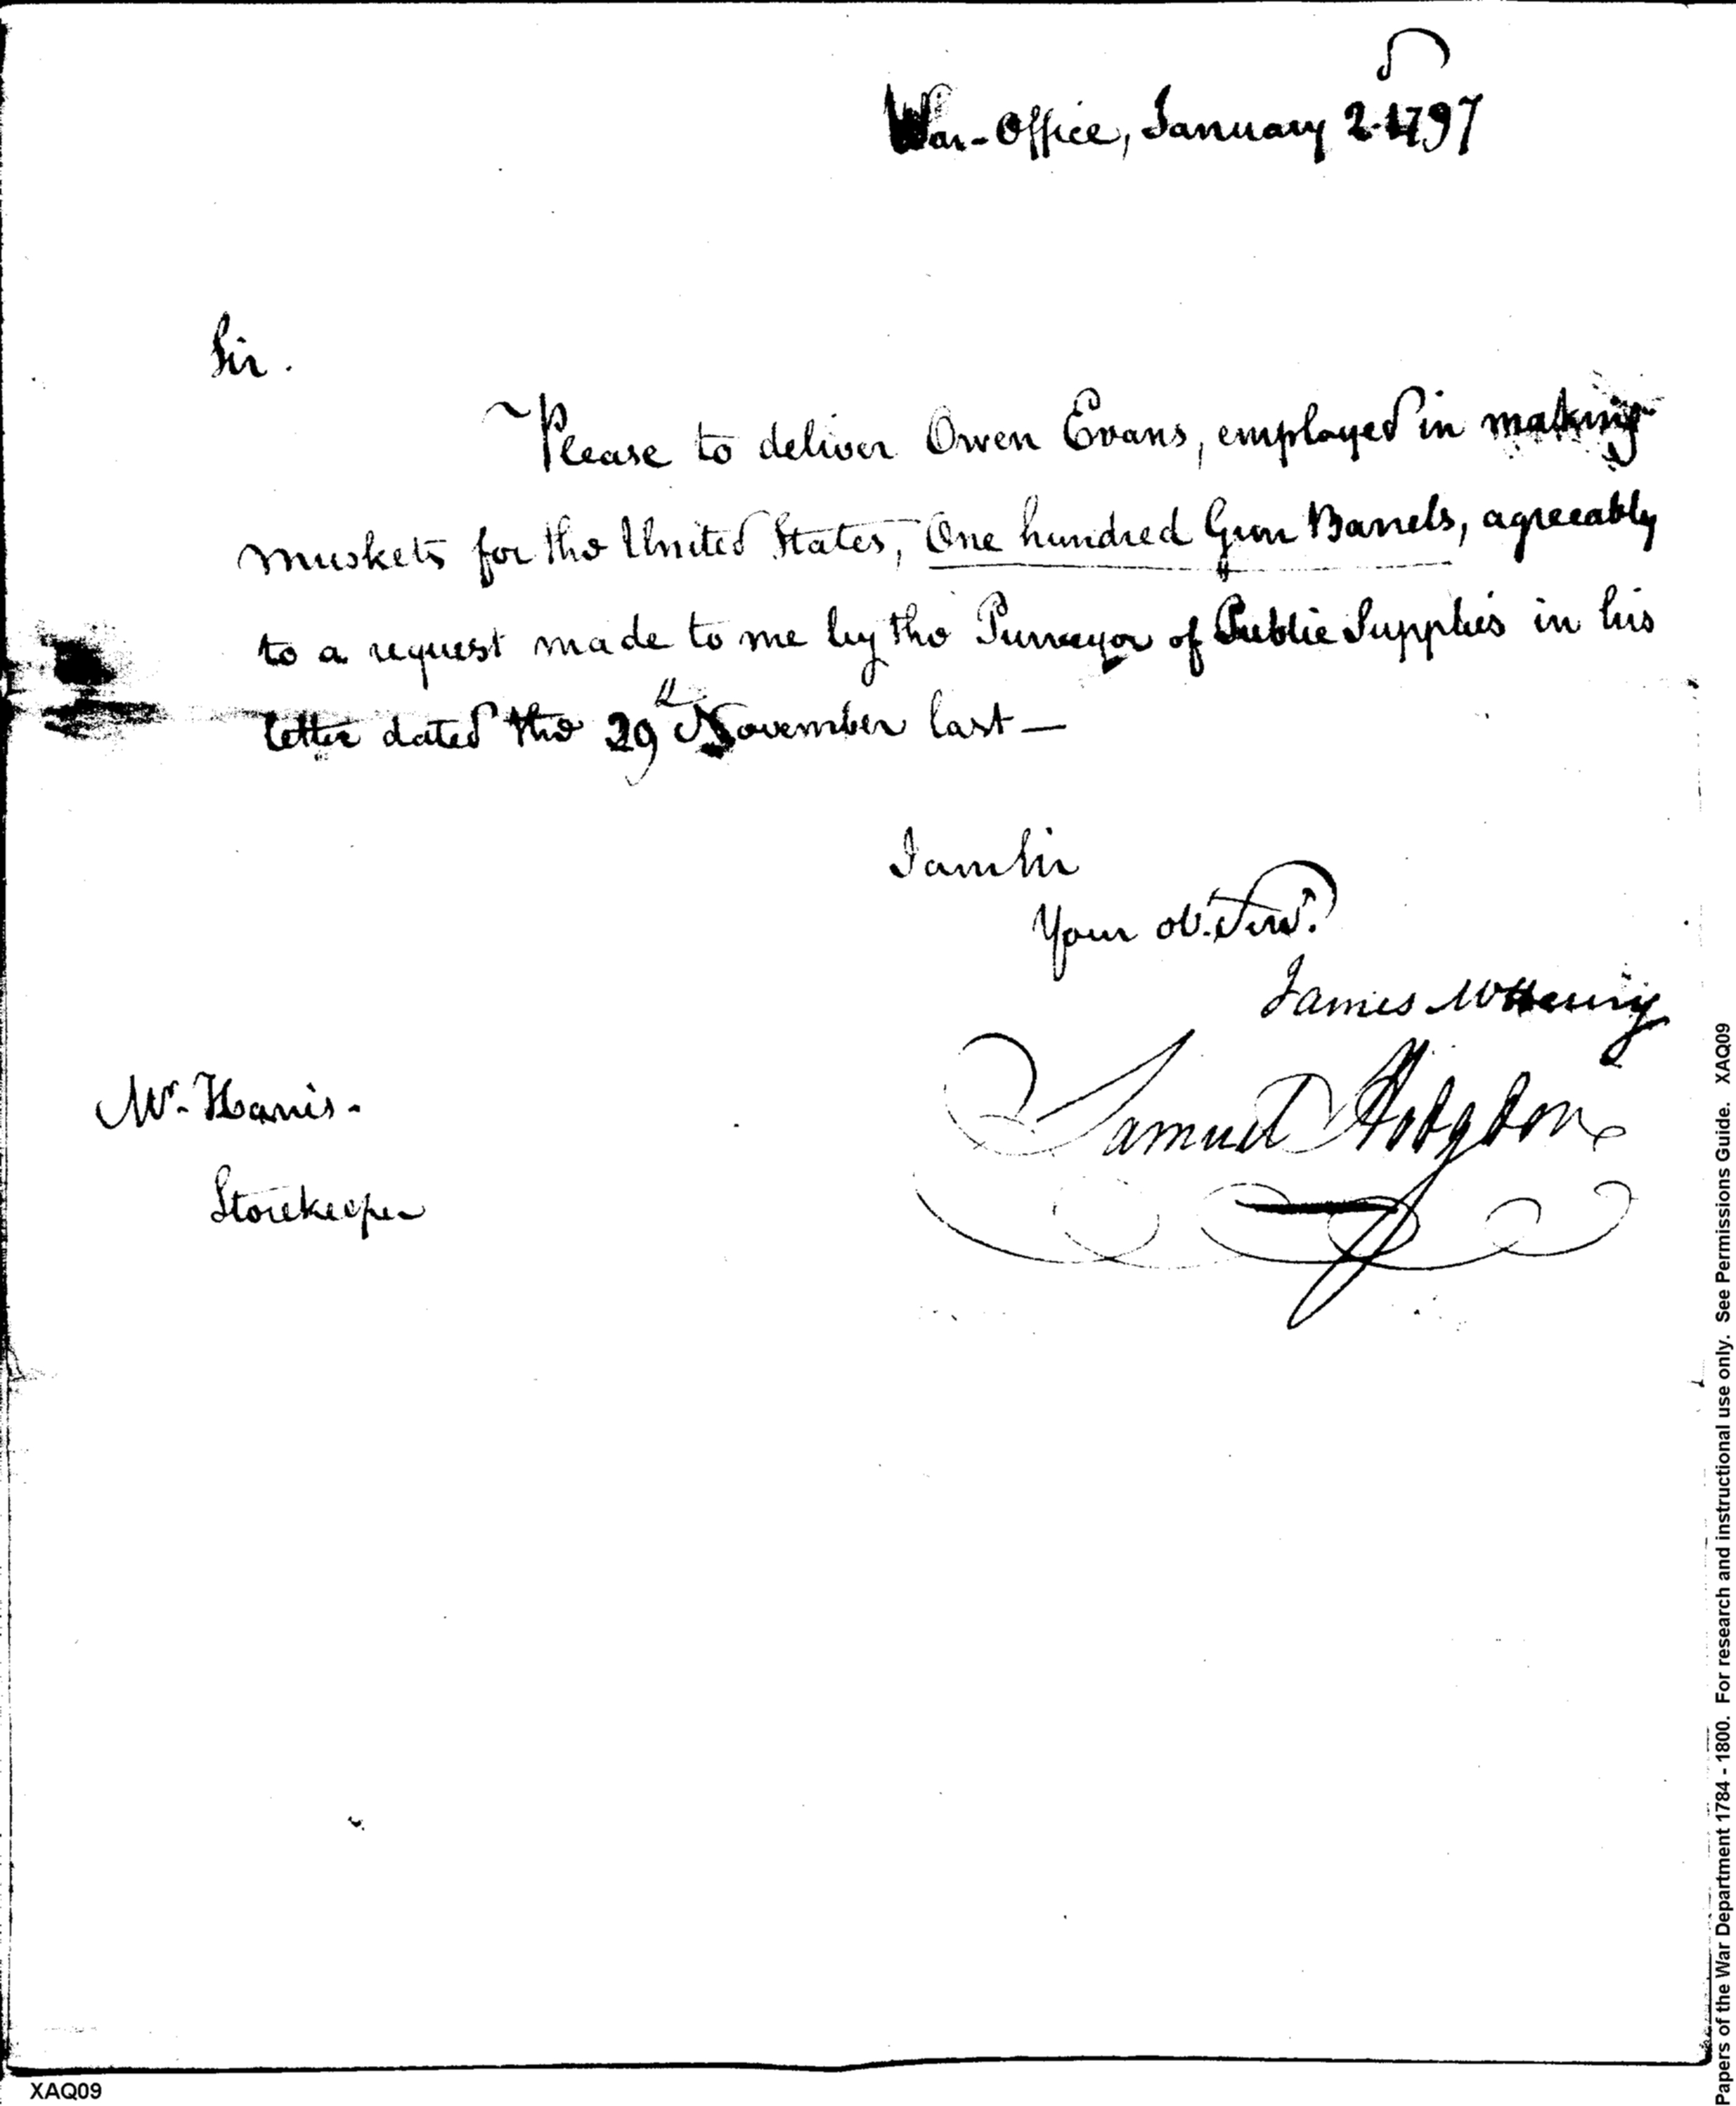 War-Office, January 2.d 1797
Sir.
Please to deliver Owen Evans, employed in making
muskets for the United States, One hundred Gun Barrels, agreeably
to a request made to me by the Purveyor of Public Supplies in his
letter dated the 29th November last—
I am Sir
Your obt. Servt.
James McHenry
Samuel Hodgdon
Mr. Harris.
Storekeeper
XAQ09
Papers of the War Department 1784 - 1800. For research and instructional use only. See Permissions Guide. XAQ09